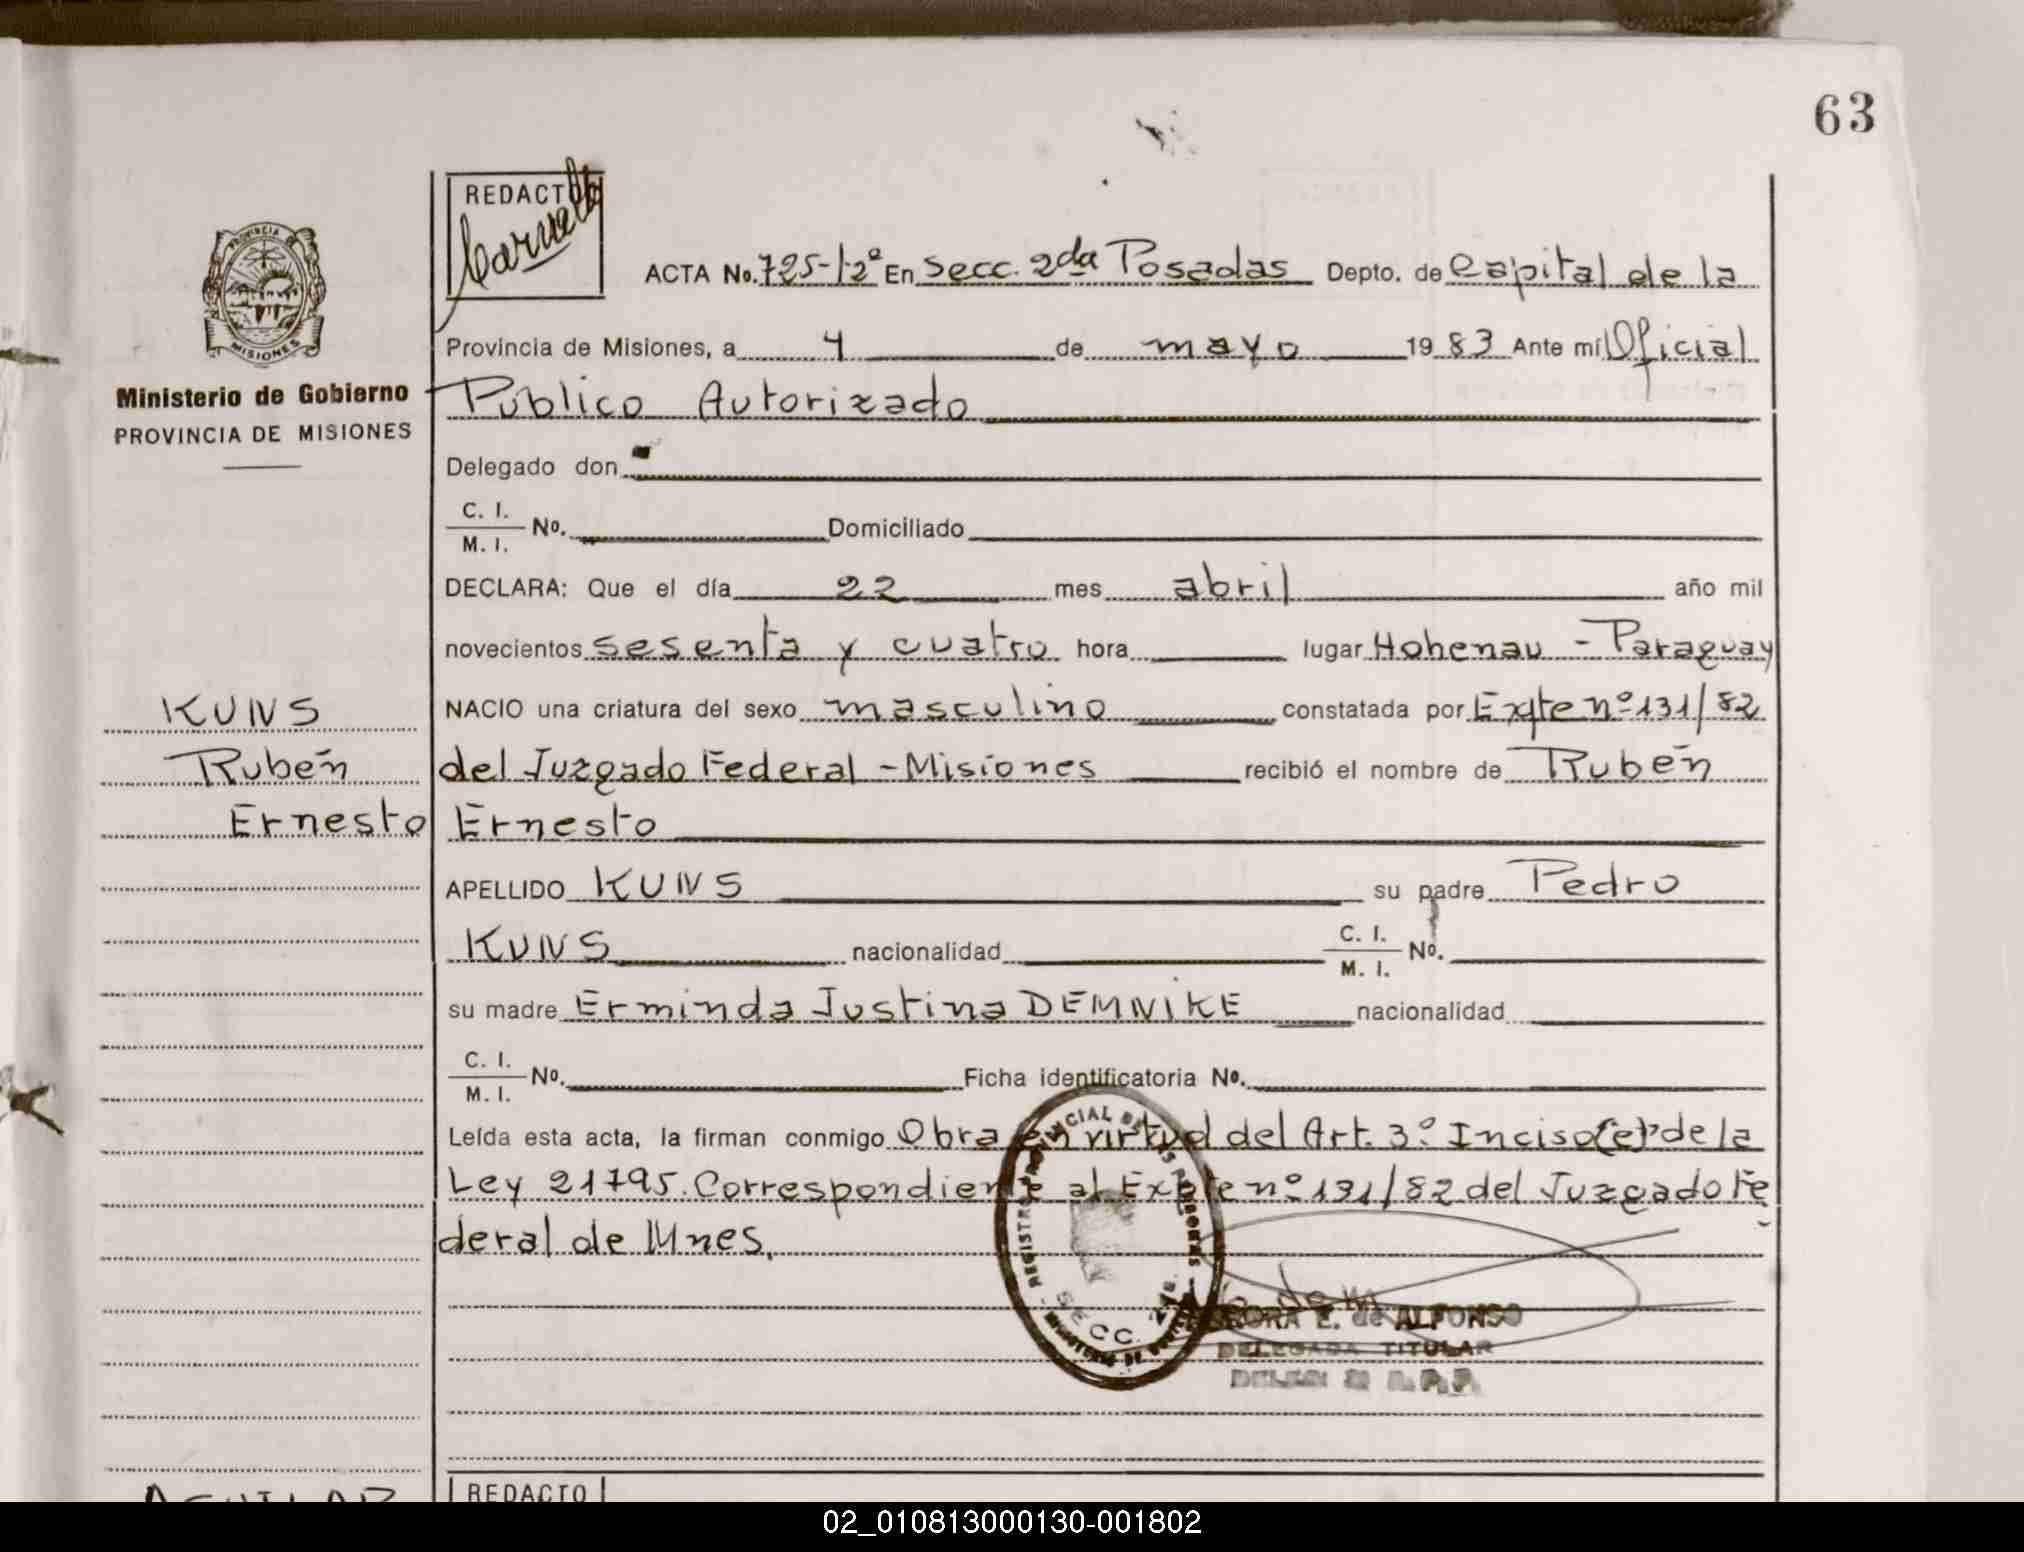 63
REDACTO
Carvallo
ACTA No. 725-1·2º En Secc. 2da Posadas Depto. de Capital de la
PROVINCIA DE
MISIONES
Provincia de Misiones, a 4 de mayo 1983 Ante mí Oficial
Ministerio de Gobierno
PROVINCIA DE MISIONES
Público Autorizado
Delegado don
C. I.
M. I. No. Domiciliado
DECLARA: Que el día 22 mes abril año mil
novecientos sesenta y cuatro hora lugar Hohenau - Paraguay
KUNS
Rubén
Ernesto
NACIO una criatura del sexo masculino constatada por Expte nº 131/82
del Juzgado Federal - Misiones recibió el nombre de Rubén
Ernesto
APELLIDO KUNS su padre Pedro
KUNS nacionalidad C. I.
M. I. No.
su madre Erminda Justina DEMNIKE nacionalidad
C. I.
M. I. No. Ficha identificatoria No.
Leída esta acta, la firman conmigo Obra en virtud del Art. 3º Inciso (e) de la
Ley 21795. Correspondiente al Expte nº 131/82 del Juzgado Fe
deral de Mnes.
REGISTRO PROVINCIAL DE LAS PERSONAS
SECC. 2da.
E. de ALFONSO
DELEGADA TITULAR
AGUILAR
REDACTO
02_010813000130-001802